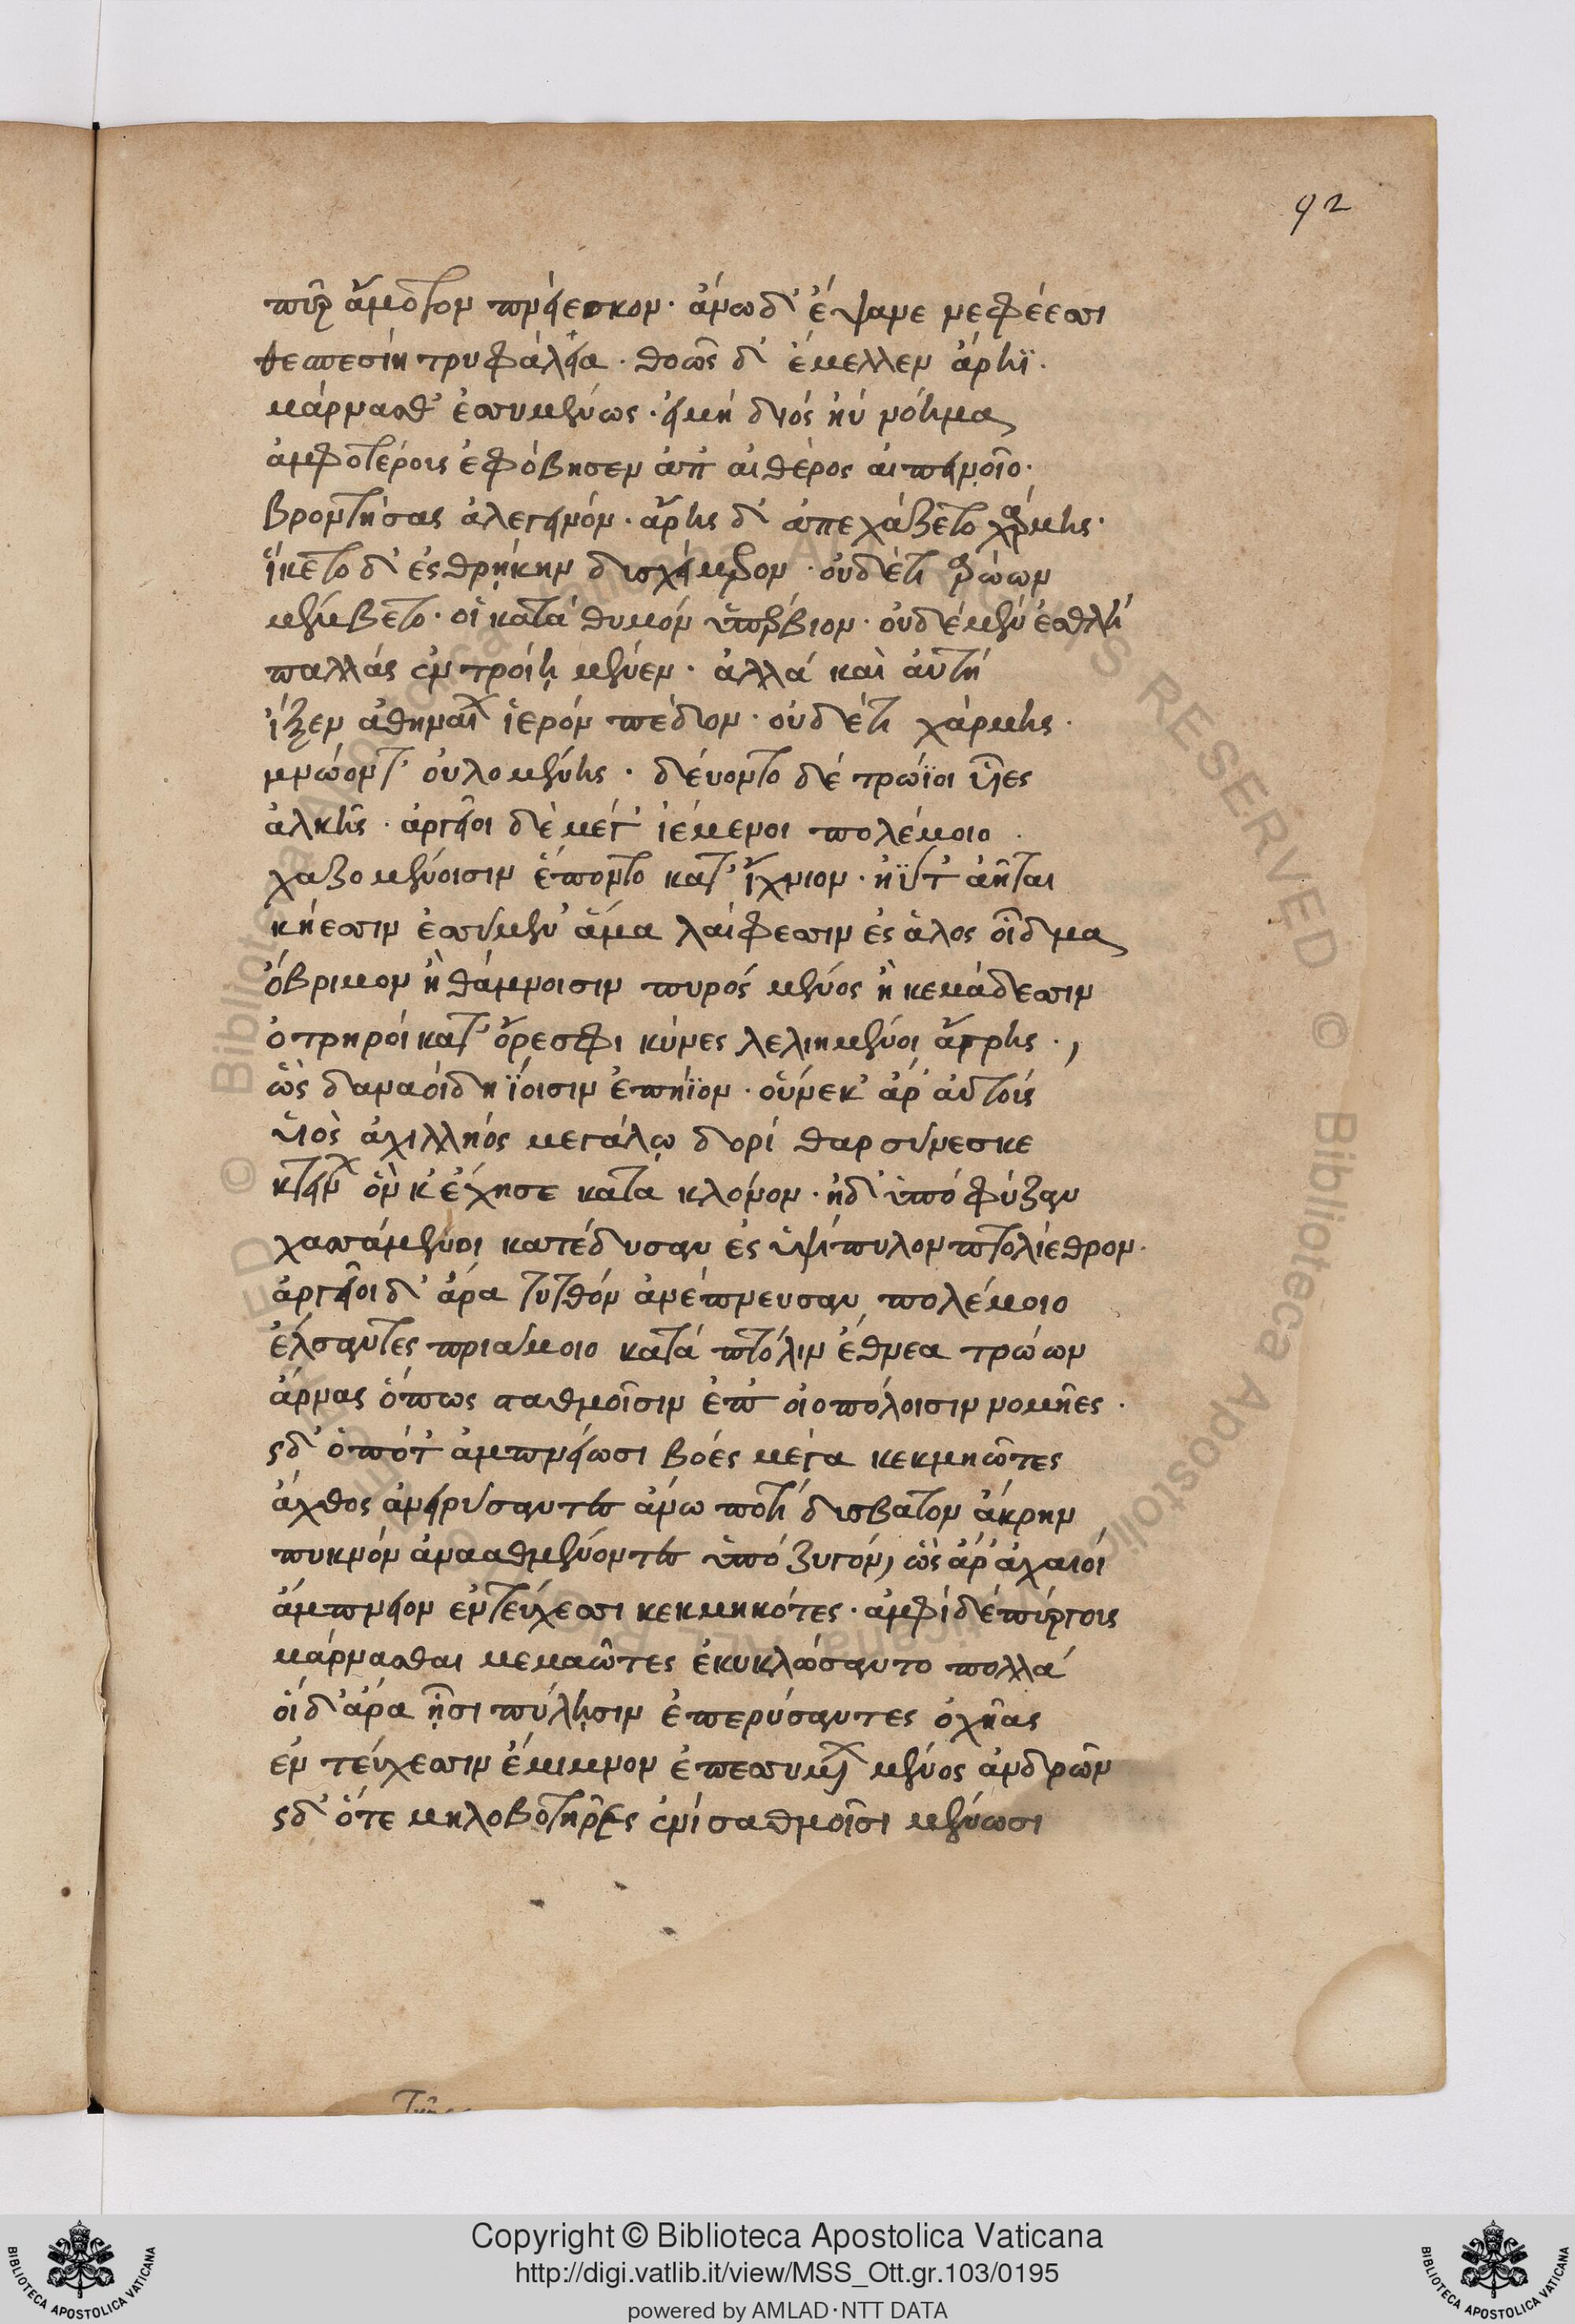 92
πῦρ ἄμοτον πνείεσκον· ἄνω δ' ἔψαυε νεφέεσσι
θεσπεσίη τρυφάλεια· θοῶς δ' ἔμελλεν ἄρηϊ·
μάρνασθ' ἐσσυμένως· εἰ μὴ διὸς ἠὺ νόημα
ἀμφοτέροις ἐφόβησεν ἀπ' αἰθέρος αἰπεινοῖο·
βροντήσας ἀλεγεινόν· ἄρης δ' ἀπεχάζετο χάρμης·
ἵκετο δ' ἐς θρήκην δυσχείμερον· οὐδ' ἔτι τρώων
μέμβετο· οἱ κατὰ θυμὸν ὑπέρβιον· οὐδὲ μὲν ἐσθλὴ
παλλὰς ἐν τροίῃ μένεν· ἀλλὰ καὶ αὐτὴ
ἷξεν ἀθηναίων ἱερὸν πέδον· οὐδ' ἔτι χάρμης·
μνώοντ' οὐλομένης· δεύοντο δὲ τρώϊοι υἷες
ἀλκῆς· ἀργεῖοι δὲ μέγ' ἱέμενοι πολέμοιο·
χαζομένοισιν ἕποντο κατ' ἴχνιον· ἠΰτ' ἀῆται
νήεσσιν ἐσσυμέν' ἅμα λαίφεσσιν ἐς ἁλὸς οἶδμα
ὄβριμον ἢ θάμνοισιν πυρὸς μένος ἢ κεμάδεσσιν
ὀτρηροὶ κατ' ὄρεσφι κύνες λελιημένοι ἄγρης·,
ὣς δαναοὶ δηΐοισιν ἐπήϊον· οὕνεκ' ἄρ' αὐτοὺς
υἱὸς ἀχιλλῆος μεγάλῳ δορὶ θαρσύνεσκε
κτείνων ὅν κ' ἐχησε κατὰ κλόνον· ἠδ' ὑπὸ φύζαν
χασσάμενοι κατέδυσαν ἐς ὑψίπυλον πτολίεθρον·
ἀργεῖοι δ' ἄρα τυτθὸν ἀνέπνευσαν πολέμοιο
ἔλσαντες πριάμοιο κατὰ πτόλιν ἔθνεα τρώων
ἄρνας ὅπως σταθμοῖσιν ἐπ' οἰοπόλοισιν νομῆες·
ὡς δ' ὁπότ' ἀμπνείωσι βόες μέγα κεκμηῶτες
ἄχθος ἀνειρύσαντες ἄνω ποτὶ δύσβατον ἄκρην
πυκνὸν ἀνασθμαίνοντες ὑπὸ ζυγόν, ὣς ἄρ' ἀχαιοὶ
ἄμπνειον ἐν τεύχεσσι κεκμηκότες· ἀμφὶ δὲ πύργοις
μάρνασθαι μεμαῶτες ἐκυκλώσαντο πολλὰ
οἱ δ' ἄρα ᾗσι πύλῃσιν ἐπερύσαντες ὀχῆας
ἐν τεύχεσσιν ἔμιμνον ἐπεσσυμένων μένος ἀνδρῶν
ὡς δ' ὅτε μηλοβοτῆρες ἐνὶ σταθμοῖσι μένωσι
Copyright © Biblioteca Apostolica Vaticana
http://digi.vatlib.it/view/MSS_Ott.gr.103/0195
powered by AMLAD·NTT DATA